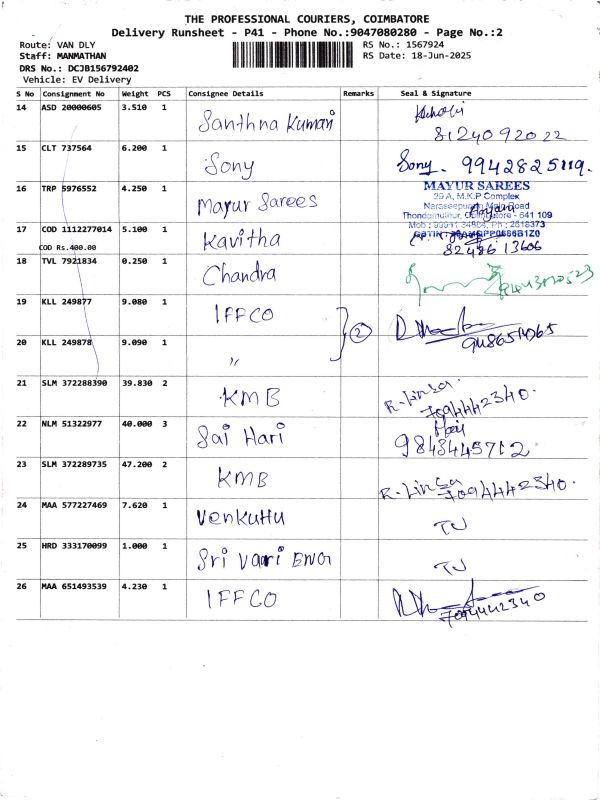 THE PROFESSIONAL COURIERS, COIMBATORE
Delivery Runsheet - P41 - Phone No.:9047080280 - Page No.:2
Route: VAN DLY
RS No.: 1567924
Staff: MANMATHAN
RS Date: 18-Jun-2025
DRS No.: DCJB156792402
Vehicle: EV Delivery
S No Consignment No Weight PCS Consignee Details Remarks Seal & Signature
14 ASD 20000605 3.510 1 Santhna Kumari
8124092022
15 CLT 737564 6.200 1 Sony Sony. 9942825119.
16 TRP 5976552 4.250 1 Mayur Sarees
MAYUR SAREES
29 A, M.K.P Complex
Naraseepuram Main Road
Thondamuthur, Coimbatore - 641 109
17 COD 1112277014 5.100 1 Kavitha
COD Rs.400.00
82486 13606
18 TVL 7921834 0.250 1 Chandra
19 KLL 249877 9.080 1 IFFCO
2
20 KLL 249878 9.090 1 "
21 SLM 372288390 39.830 2 KMB R. Linsa.
7094442340.
22 NLM 51322977 40.000 3 Sai Hari Hari
9843445712
23 SLM 372289735 47.200 2 KMB R. Linsa
7094442340.
24 MAA 577227469 7.620 1 Venkuttu TJ
25 HRD 333170099 1.000 1 Sri Vari TJ
26 MAA 651493539 4.230 1 IFFCO
7094442340